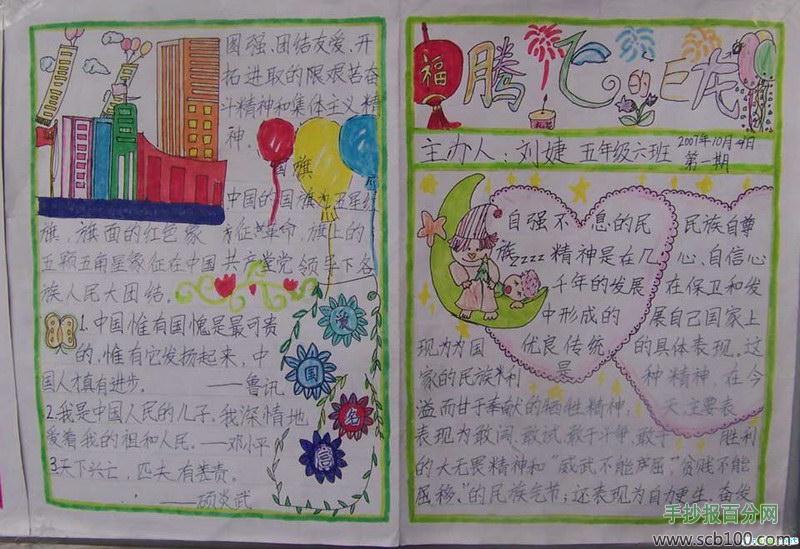 图强、团结友爱、开
拓进取的限艰苦奋
斗精神和集体主义精
神。
国旗
中国的国旗为五年红
旗，旗面的红色象征革命，旗上的
五颗五角星象征在中国共产党领导下各
族人民大团结。
1.中国惟有国愧是最可贵
的，惟有它发扬起来，中
国人才真有进步。
——鲁讯
2.我是中国人民的儿子。我深情地
爱着我的祖和人民。—邓小平
3天下兴亡，匹夫有差责。
——顾炎武
爱
国
名
言
福
腾飞的巨龙
主办人：刘婕 五年级六班
2007年10月4日
第一期
自强不息的民
族zzzz精神是在几
千年的发展
中形成的
优良传统
是
民族自尊
心、自信心
在保卫和发
展自己国家上
的具体表现。这
种精神，在今
天主要表
现为为国
家的民族利
溢而甘于奉献的牺牲精神，
表现为敢闯、敢试、敢于斗争、敢于胜利
的大无畏精神和“威武不能屈”“贫贱不能
屈移。”的民族气节；还表现为自力更生、奋发
手抄报百分网
www.scb100.com